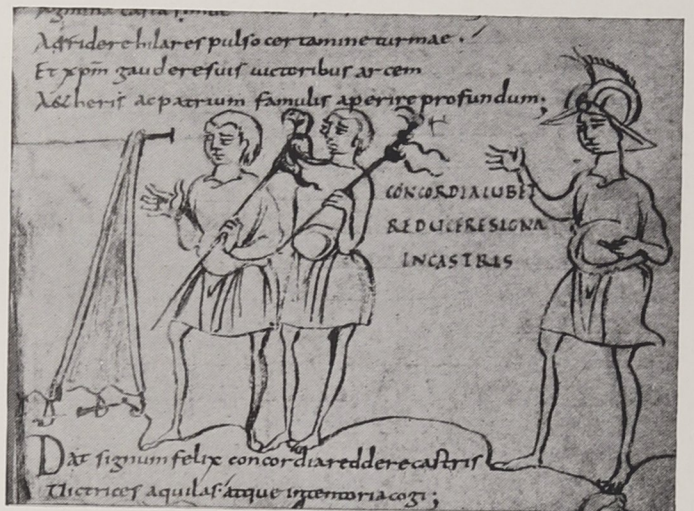 Agmina casta
Adridere hilares pulso certamine turmae.
Et xpm̄ gaudere suis uictoribus arcem
Aetheris ac patrium famulis aperire profundum;
CONCORDIA IUBET
REDUCERE SIGNA
IN CASTRIS
Dat signum felix concordia reddere castris
Uictrices aquilas atque in tentoria cogi;